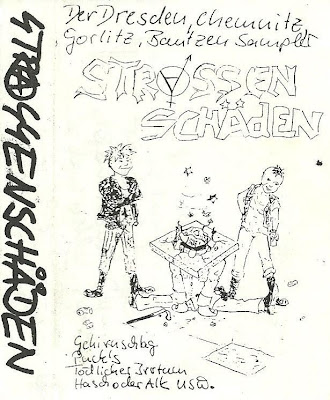 STRASSENSCHÄDEN
Der Dresden, Chemnitz,
Görlitz, Bautzen Sampler
STRASSEN
SCHÄDEN
Gehirnschlag
Tödlicher Irrtum
Hasch oder Alk USW.